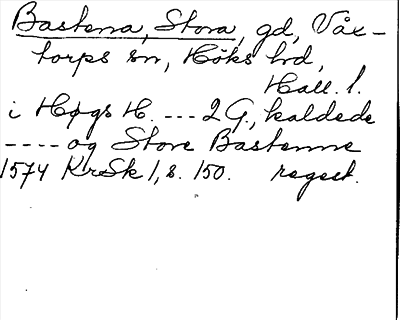 Bastena, Stora, gd, Våx-
torps sn, Höks hd,
Hall. l.
i Høgs H. --- 2 G., kaldede
---- og Store Bastenne
1574 KrSk 1, s. 150. regest.